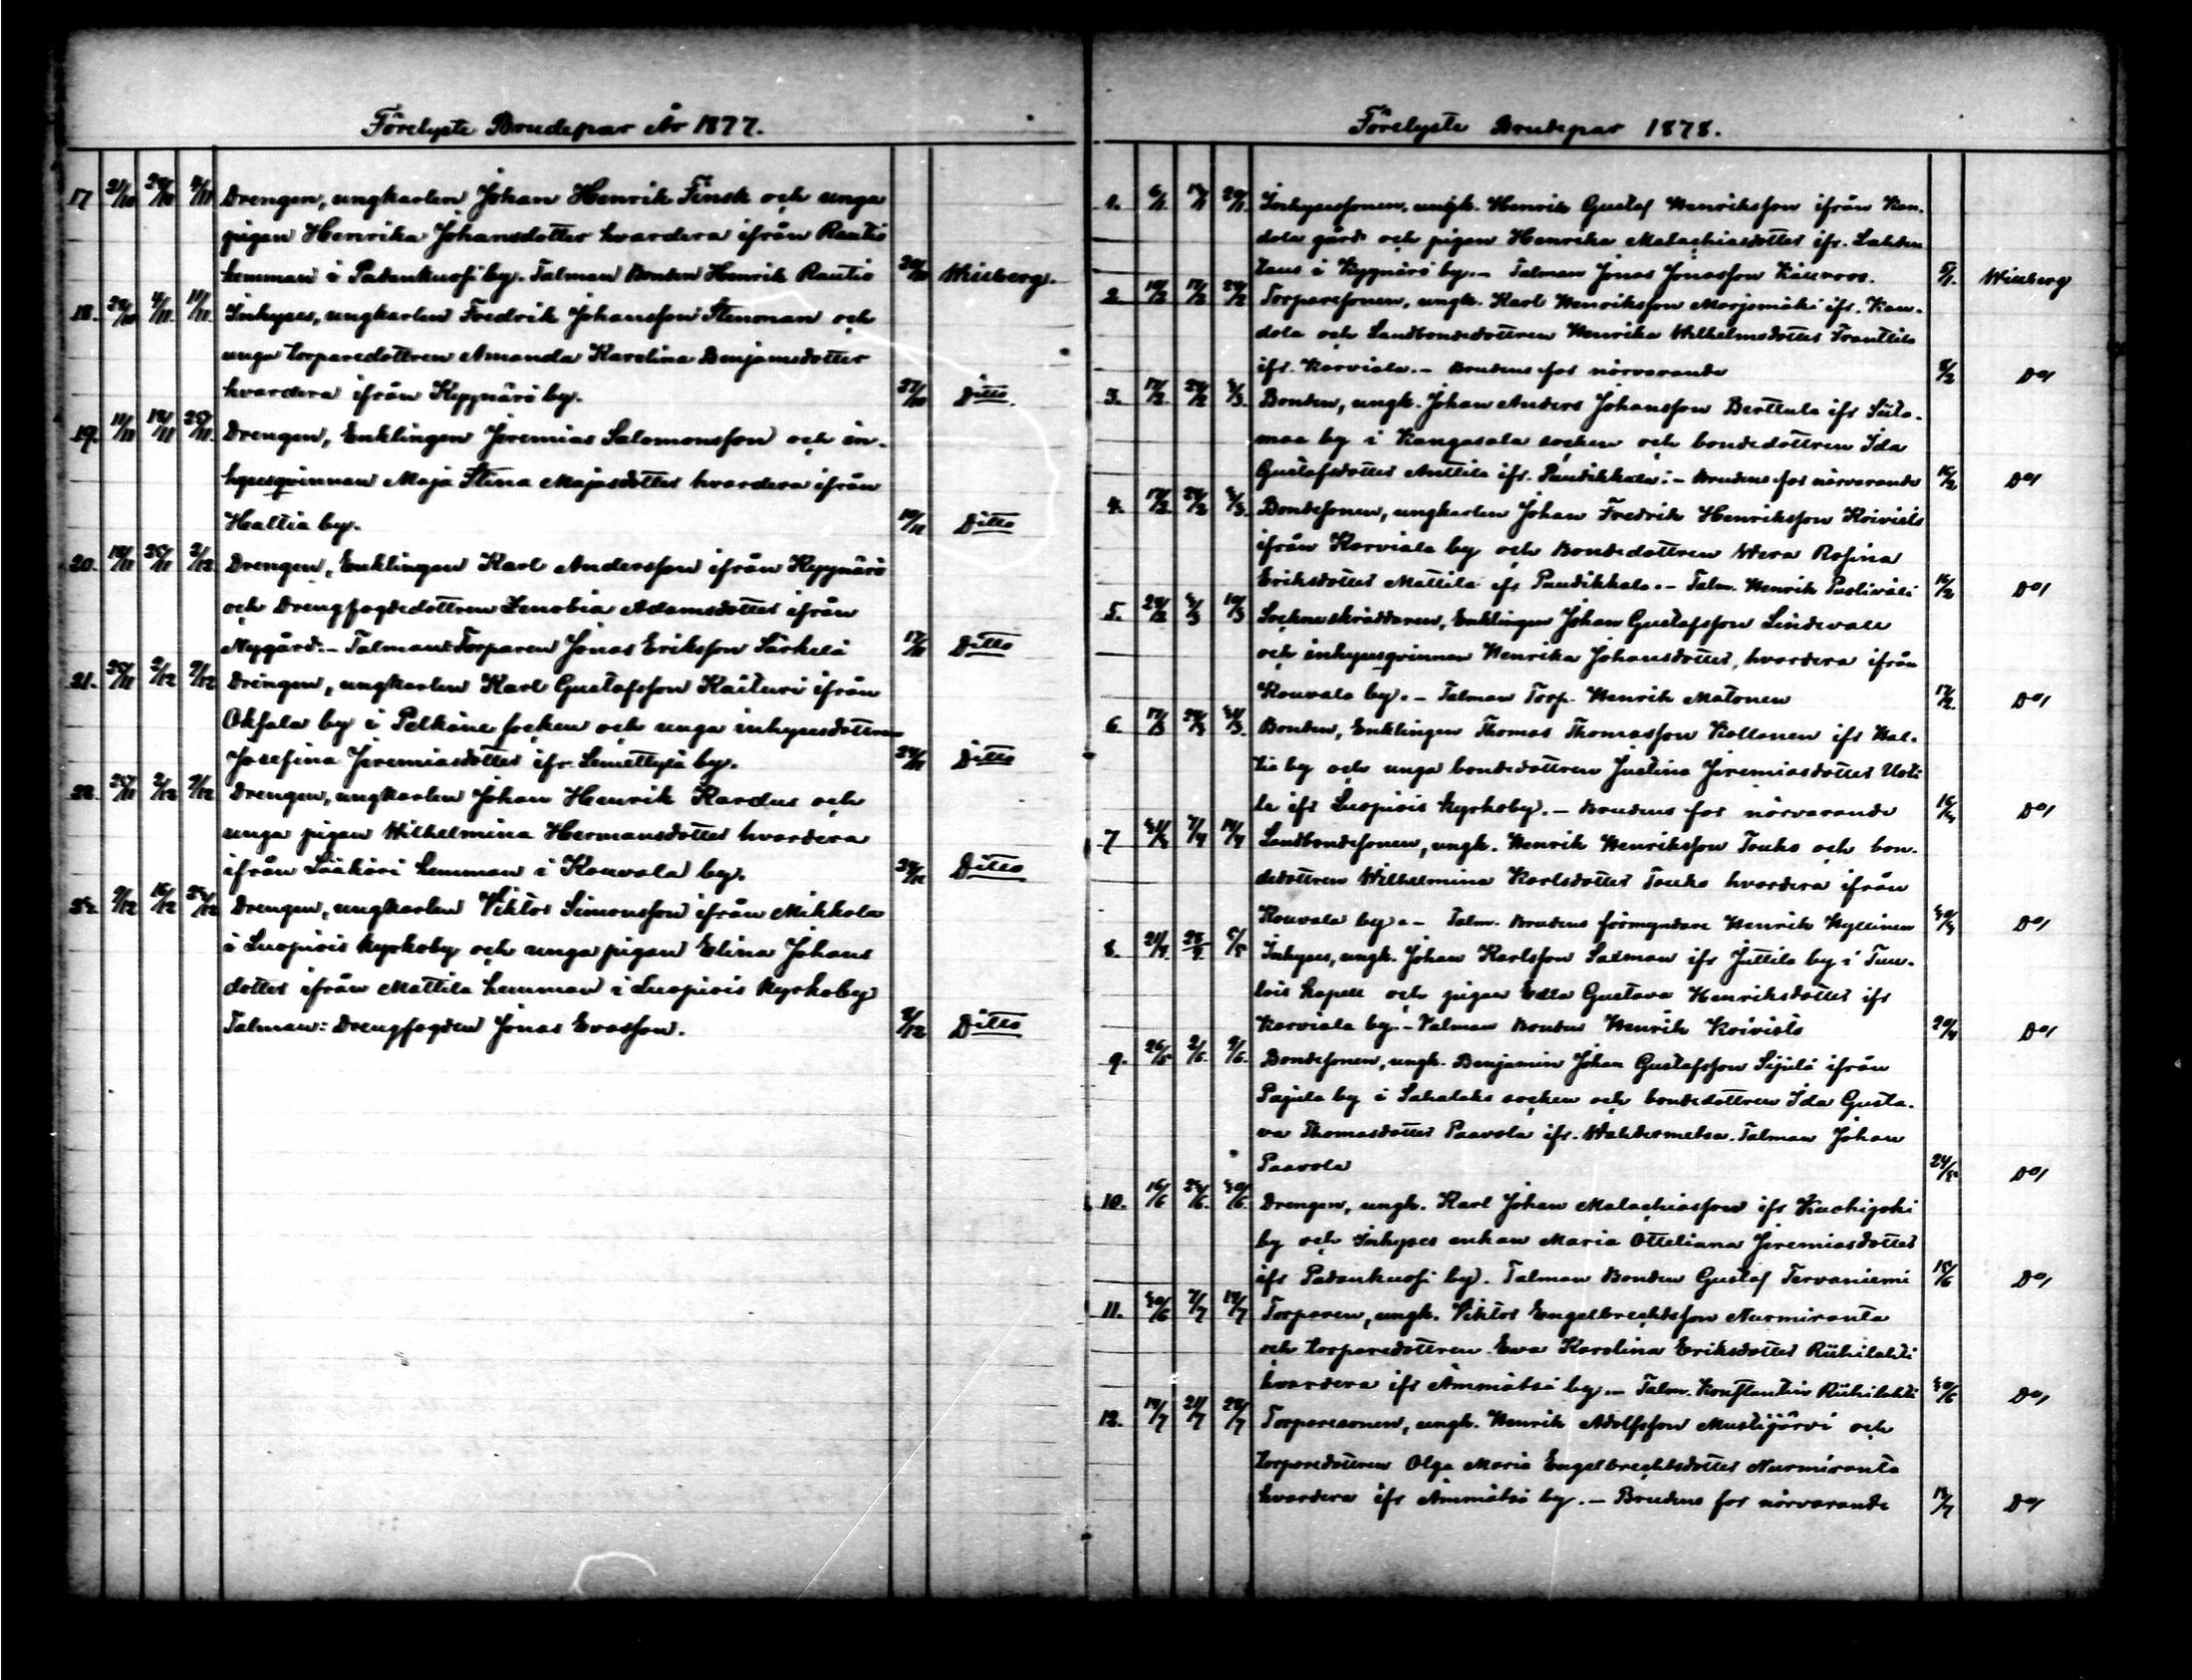 Förelyste Brudepar År 1877.
17 21/10 28/10 4/11 Drengen, ungkarlen Johan Henrik Finsk och unga
pigan Henrika Johansdotter hvardera ifrån Rautio
hemman i Padankuosi by. Talman Bonden Henrik Rautio 20/10 Winberg.
18. 28/10 4/11 11/11 Inhyses, ungkarlen Fredrik Johansson Stenman och
unga torparedottren Amanda Karolina Benjamsdotter
hvardera ifrån Kyynärö by. 27/10 Ditto
19. 11/11 18/11 25/11 Drengen, Enklingen Jeremias Salomonsson och in-
hysesqvinnan Maja Stina Majasdotter hvardera ifrån
Haltia by. 10/11 Ditto
20. 18/11 25/11 2/12 Drengen, Enklingen Karl Andersson ifrån Kyynärö
och Drengfogdedottren Zenobia Adamsdotter ifrån
Nygård. – Talman: Torparen Jonas Eriksson Särkelä 17/11 Ditto
21. 25/11 2/12 9/12 Drengen, ungkarlen Karl Gustafsson Kaituri ifrån
Okfala by i Pelkäne socken och unga inhysesdottren
Josefina Jeremiasdotter ifr. Simettylä by. 24/11 Ditto
22. 25/11 2/12 9/12 Drengen, ungkarlen Johan Henrik Kardus och
unga pigan Wilhelmina Hermansdotter hvardera
ifrån Lääkäri hemman i Kouvala by. 24/11 Ditto
23. 9/12 16/12 Drengen, ungkarlen Viktor Simonsson ifrån Mikkola
i Luopiois Kyrkoby och unga pigan Elina Johans
dotter ifrån Mattila hemman i Luopiois Kyrkoby
Talman: Drengfogden Jonas Evasson. 8/12 Ditto
Förelyste Brudepar 1878.
1. 6/1 13/1 20/1 Inhysessonen, ungk. Henrik Gustaf Henriksson ifrån Kan-
dola gård och pigan Henrika Malachiasdotter ifr. Lahden
taus i Kyynärö by. – Talman Jonas Jonasson Kauroos. 5/1 Winberg
2. 10/2 17/2 24/2 Torparesonen, ungk. Karl Henriksson Marjomäki ifr. Kan-
dola och Landbondedottren Henrika Wilhelmsdotter Franttila
ifr. Korviala. – Brudens far närvarande 8/2 Do/
3. 17/2 24/2 3/3 Bonden, ungk. Johan Anders Johansson Berttula ifr Siita-
maa by i Kangasala socken och bondedottren Ida
Gustafsdotter Anttila ifr. Puudikkala: – Brudens far närvarande 16/2 Do/
4. 17/2 24/2 3/3 Bondesonen, ungkarlen Johan Fredrik Henriksson Koivisto
ifrån Korviala by och Bondedottren Wera Rosina
Eriksdotter Mattila ifr Puudikkala. – Talm. Henrik Puoliväli 16/2 Do/
5. 24/2 3/3 10/3 Sockneskräddaren, Enklingen Johan Gustafsson Lindevall
och inhysesqvinnan Henrika Johansdotter, hvardera ifrån
Kouvala by. – Talman Torp. Henrik Matonen 17/2 Do/
6. 17/3 24/3 31/3 Bonden, Enklingen Thomas Thomasson Kollanen ifr Hal-
tia by och unga bondedottren Justina Jeremiasdotter Uoti-
la ifr Luopiois Kyrkoby. – Brudens far närvarande 16/3 Do/
7 31/3 7/4 14/4 Landbondesonen, ungk. Henrik Henriksson Touko och bon-
dedottren Wilhelmina Karlsdotter Touko hvardera ifrån
Kouvala by. – Talm. Brudens förmyndare Henrik Kyllinen 30/3 Do/
8. 21/4 28/4 5/5 Inhyses, ungk. Johan Karlsson Salman ifr Juttila by i Tuu-
lois Kapell och pigan Edla Gustava Henriksdotter ifr
Korviala by. – Talman Bonden Henrik Koivisto 20/4 Do/
9. 26/5 2/6 9/6 Bondesonen, ungk. Benjamin Johan Gustafsson Sipilä ifrån
Pajula by i Sahalaks socken och bondedottren Ida Gusta-
va Thomasdotter Paavola ifr. Wahdermetsa. Talman Johan
Paavola 24/5 Do/
10. 16/6 23/6 30/6 Drengen, ungk. Karl Johan Malachiasson ifr Kuohijoki
by och Inhyses enkan Maria Otteliana Jeremiasdotter
ifr Padankuosi by. Talman Bonden Gustaf Tervaniemi 15/6 Do/
11. 30/6 7/7 14/7 Torparen, ungk. Viktor Engelbrechtsson Nurmiranta
och torparedottren Eva Karolina Eriksdotter Riihilahti
hvardera ifr Ämmätsä by. – Talm. Konstantin Riihilahti 30/6 Do/
12. 14/7 21/7 28/7 Torparesonen, ungk. Henrik Adolfsson Mustijärvi och
torparedottren Olga Maria Engelbrechtsdotter Nurmiranta
hvardera ifr Ämmätsä by. – Brudens far närvarande 13/7 Do/